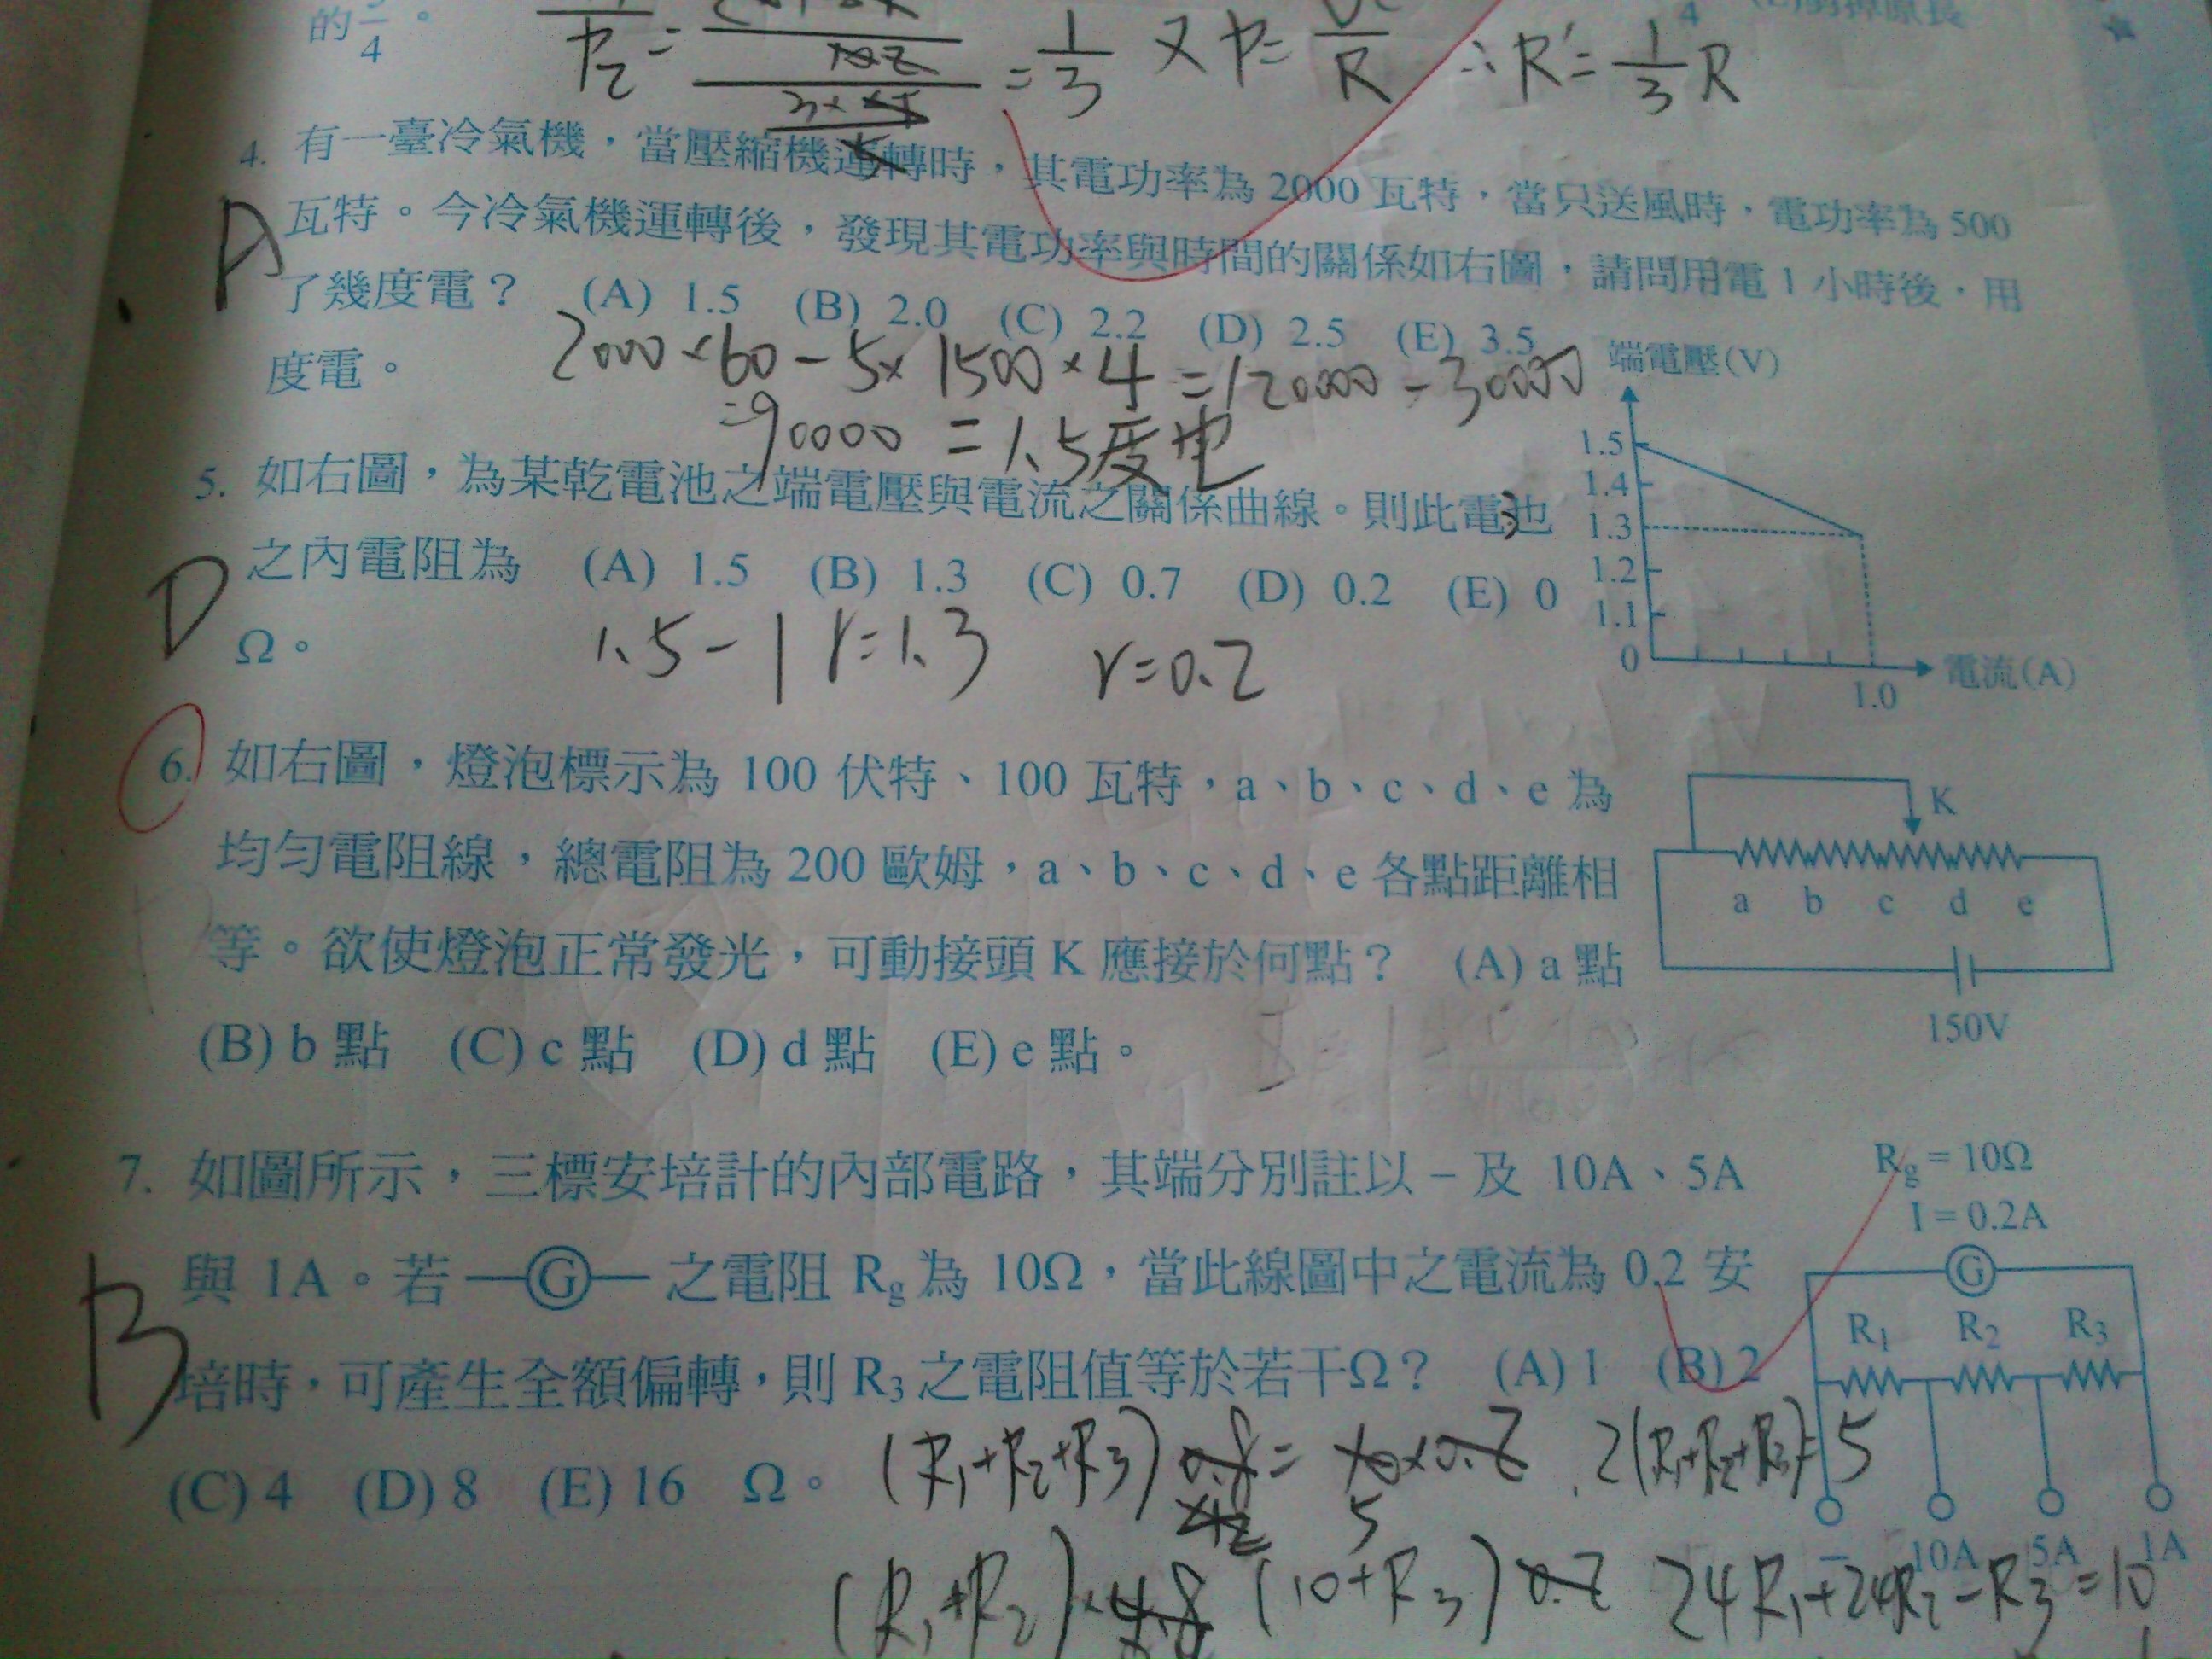 的 3/4。
P₂ = = 1/3 又 P = /R ∴ R' = 1/3 R
4. 有一臺冷氣機，當壓縮機運轉時，其電功率為 2000 瓦特，當只送風時，電功率為 500
瓦特。今冷氣機運轉後，發現其電功率與時間的關係如右圖，請問用電 1 小時後，用
了幾度電？ (A) 1.5 (B) 2.0 (C) 2.2 (D) 2.5 (E) 3.5
度電。
A
2000×60－5×1500×4＝120000－30000
=90000 = 1.5度电
5. 如右圖，為某乾電池之端電壓與電流之關係曲線。則此電池
之內電阻為 (A) 1.5 (B) 1.3 (C) 0.7 (D) 0.2 (E) 0
Ω。
D
1.5－1r=1.3 r=0.2
端電壓(V)
1.5
1.4
1.3
1.2
1.1
0
1.0
電流(A)
6. 如右圖，燈泡標示為 100 伏特、100 瓦特，a、b、c、d、e 為
均勻電阻線，總電阻為 200 歐姆，a、b、c、d、e 各點距離相
等。欲使燈泡正常發光，可動接頭 K 應接於何點？ (A) a 點
(B) b 點 (C) c 點 (D) d 點 (E) e 點。
K
a b c d e
150V
7. 如圖所示，三標安培計的內部電路，其端分別註以－及 10A、5A
與 1A。若 G 之電阻 Rg 為 10Ω，當此線圖中之電流為 0.2 安
培時，可產生全額偏轉，則 R₃ 之電阻值等於若干Ω？ (A) 1 (B) 2
(C) 4 (D) 8 (E) 16 Ω。
B
Rg = 10Ω
I = 0.2A
G
R₁ R₂ R₃
－ 10A 5A 1A
(R₁+R₂+R₃) 0.8 = 10×0.2 2(R₁+R₂+R₃)=5
5
(R₁+R₂)×4.8 (10+R₃) 0.2 24R₁+24R₂－R₃=10